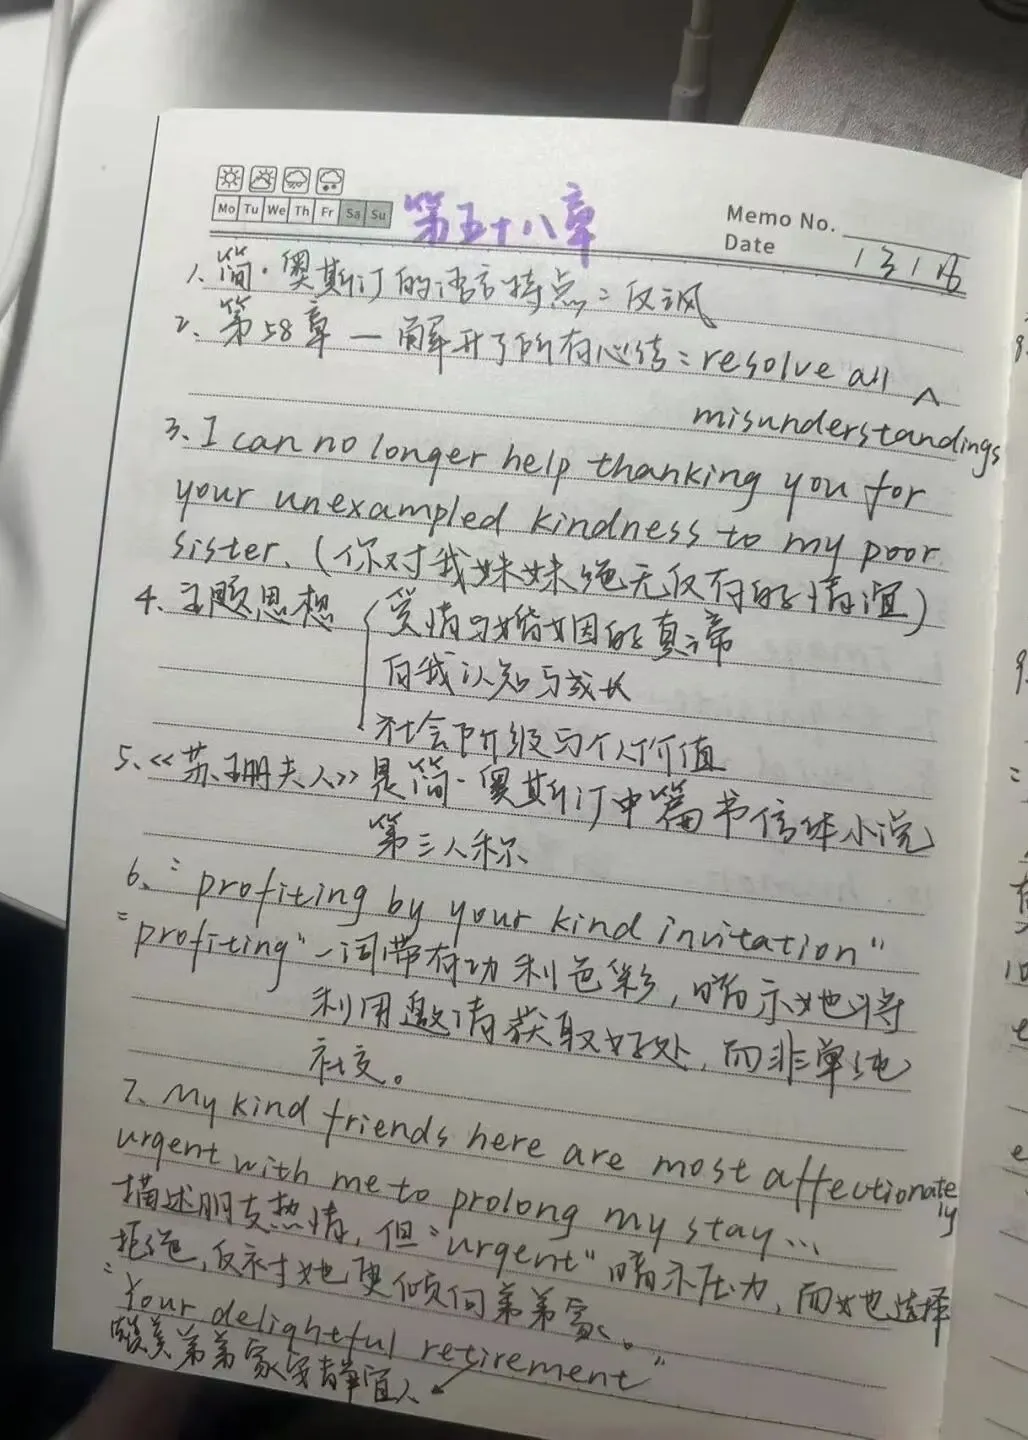 Mo Tu We Th Fr Sa Su
第五十八章
Memo No.
Date
1、简·奥斯汀的语言特点：反讽
2、第58章一解开了所有心结：resolve all ^
misunderstandings
3、I can no longer help thanking you for
your unexampled kindness to my poor
sister.（你对我妹妹绝无仅有的情谊）
4、主题思想 { 爱情与婚姻的真谛
自我认知与成长
社会阶级与个人价值
5、《苏珊夫人》是简·奥斯汀中篇书信体小说
第三人称
6、"profiting by your kind invitation"
"profiting"一词带有功利色彩，暗示她将
利用邀请获取好处，而非单纯
社交。
7、My kind friends here are most affectionately
urgent with me to prolong my stay...
描述朋友热情，但"urgent"暗示压力，而她选择
拒绝，反衬她更倾向弟弟家。
"Your delightful retirement"
赞美弟弟家安静宜人